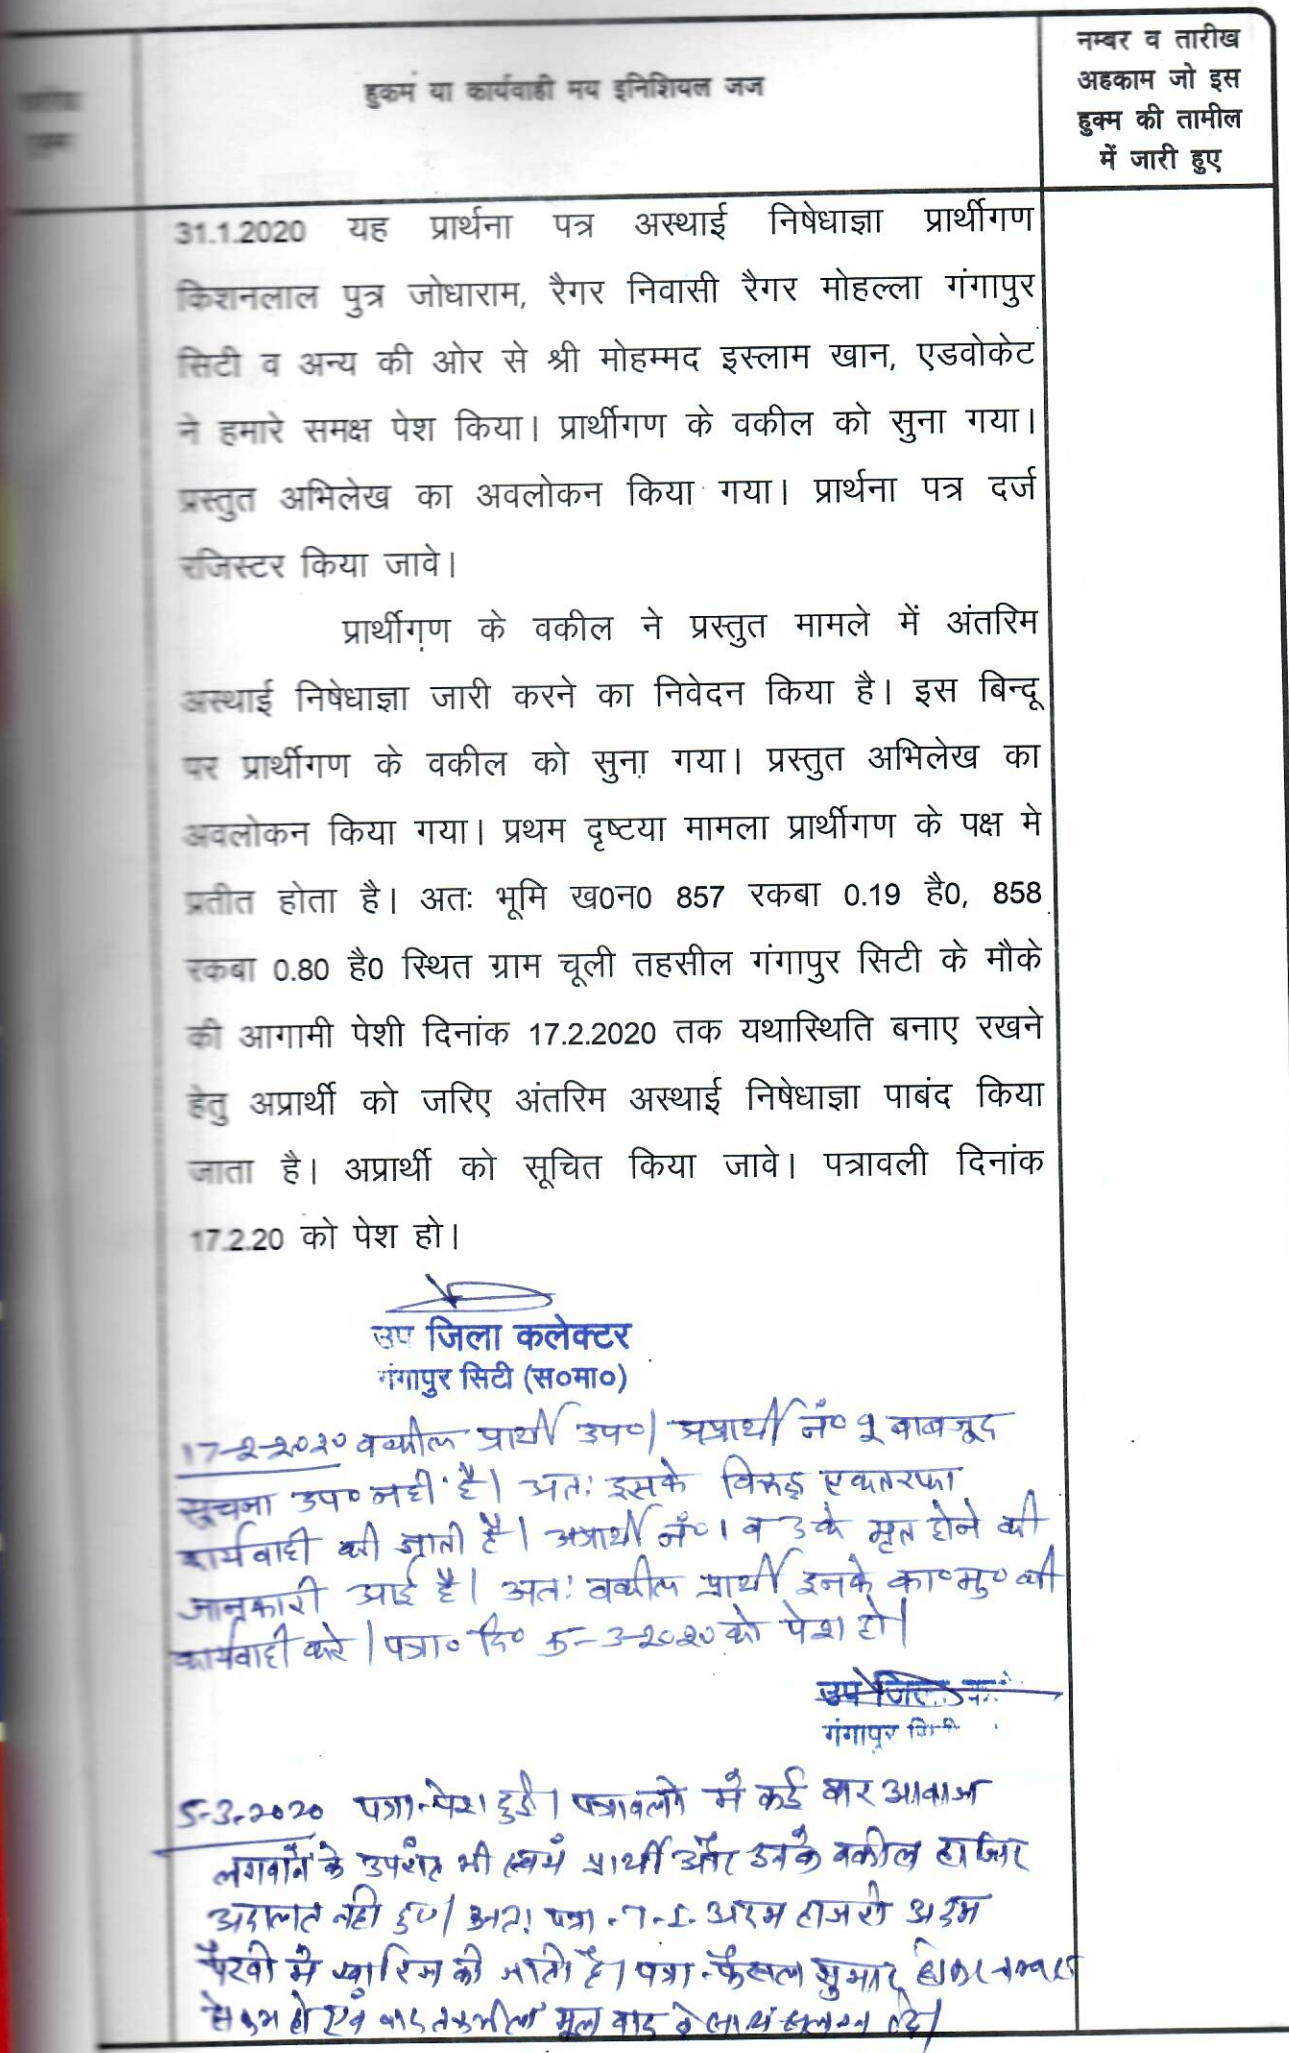 हुकमं या कार्यवाही मय इनिशियल जज
नम्बर व तारीख
अहकाम जो इस
हुक्म की तामील
में जारी हुए
31.1.2020 यह प्रार्थना पत्र अस्थाई निषेधाज्ञा प्रार्थीगण
किशनलाल पुत्र जोधाराम, रैगर निवासी रैगर मोहल्ला गंगापुर
सिटी व अन्य की ओर से श्री मोहम्मद इस्लाम खान, एडवोकेट
ने हमारे समक्ष पेश किया। प्रार्थीगण के वकील को सुना गया।
प्रस्तुत अभिलेख का अवलोकन किया गया। प्रार्थना पत्र दर्ज
रजिस्टर किया जावे।
प्रार्थीगण के वकील ने प्रस्तुत मामले में अंतरिम
अस्थाई निषेधाज्ञा जारी करने का निवेदन किया है। इस बिन्दू
पर प्रार्थीगण के वकील को सुना गया। प्रस्तुत अभिलेख का
अवलोकन किया गया। प्रथम दृष्टया मामला प्रार्थीगण के पक्ष मे
प्रतीत होता है। अतः भूमि ख0न0 857 रकबा 0.19 है0, 858
रकबा 0.80 है0 स्थित ग्राम चूली तहसील गंगापुर सिटी के मौके
की आगामी पेशी दिनांक 17.2.2020 तक यथास्थिति बनाए रखने
हेतु अप्रार्थी को जरिए अंतरिम अस्थाई निषेधाज्ञा पाबंद किया
जाता है। अप्रार्थी को सूचित किया जावे। पत्रावली दिनांक
17.2.20 को पेश हो।
उप जिला कलेक्टर
गंगापुर सिटी (स०मा०)
17-2-2020 वकील प्रार्थी उप०। अप्रार्थी नं० 2 बाबजूद
सूचना उप० नही है। अतः इसके विरूद्ध एकतरफा
कार्यवाही की जाती है। अप्रार्थी नं० 1 व 3 के मृत होने की
जानकारी आई है। अतः वकील प्रार्थी इनके का०मु० की
कार्यवाही करे। पत्रा० दि० 5-3-2020 को पेश हो।
उप जिला
गंगापुर सिटी
5-3-2020 पत्रा-पेश हुई। पत्रावली मे कई बार आवाज
लगवाने के उपरांत भी स्वयं प्रार्थी और उनके वकील हाजिर
अदालत नही हुए। अतः पत्रा अदम हाजरी अदम
पैरवी मे खारिज की जाती है। पत्रा-फैसल शुमार होकर नम्बर
से कम हो एवं बाद तकमील मूल वाद के साथ संलग्न रहे।